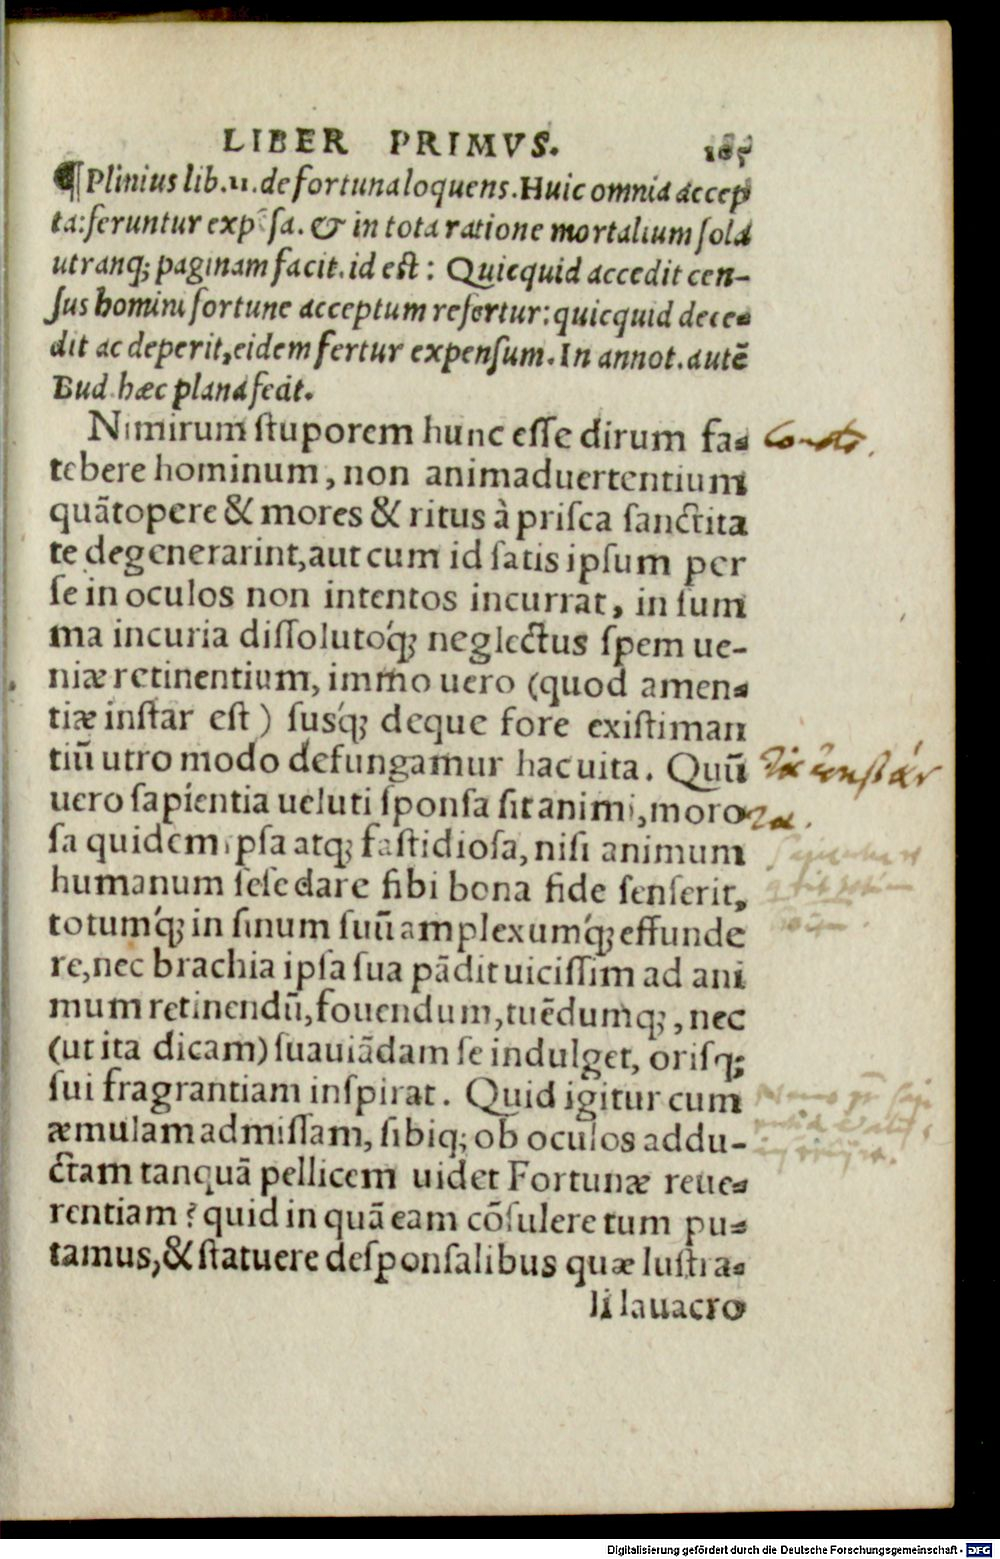 LIBER PRIMVS. 185
¶Plinius lib.11.de fortuna loquens.Huic omnia accep
ta:feruntur expēsa.& in tota ratione mortalium sola
utranq; paginam facit.id est: Quicquid accedit cen-
sus homini fortune acceptum refertur:quicquid dece-
dit ac deperit,eidem fertur expensum.In annot.autē
Bud.hæc plana fecit.
Nimirum stuporem hunc esse dirum fa-
tebere hominum, non animaduertentium
quātopere & mores & ritus à prisca sanctita
te degenerarint,aut cum id satis ipsum per
se in oculos non intentos incurrat, in sum
ma incuria dissolutoq́; neglectus spem ue-
niæ retinentium, immo uero (quod amen-
tiæ instar est) susq́; deque fore existiman
tiū utro modo defungamur hac uita. Quū
uero sapientia ueluti sponsa sit animi,moro
sa quidem ipsa atq; fastidiosa, nisi animum
humanum sese dare sibi bona fide senserit,
totumq́; in sinum suū amplexumq́; effunde
re,nec brachia ipsa sua pādit uicissim ad ani
mum retinendū,fouendum,tuēdumq;, nec
(ut ita dicam) suauiādam se indulget, orisq;
sui fragrantiam inspirat. Quid igitur cum
æmulam admissam, sibiq; ob oculos addu-
ctam tanquā pellicem uidet Fortunæ reue-
rentiam? quid in quā eam cōsulere tum pu-
tamus,& statuere de sponsalibus quæ lustra-
li lauacro
Digitalisierung gefördert durch die Deutsche Forschungsgemeinschaft - DFG